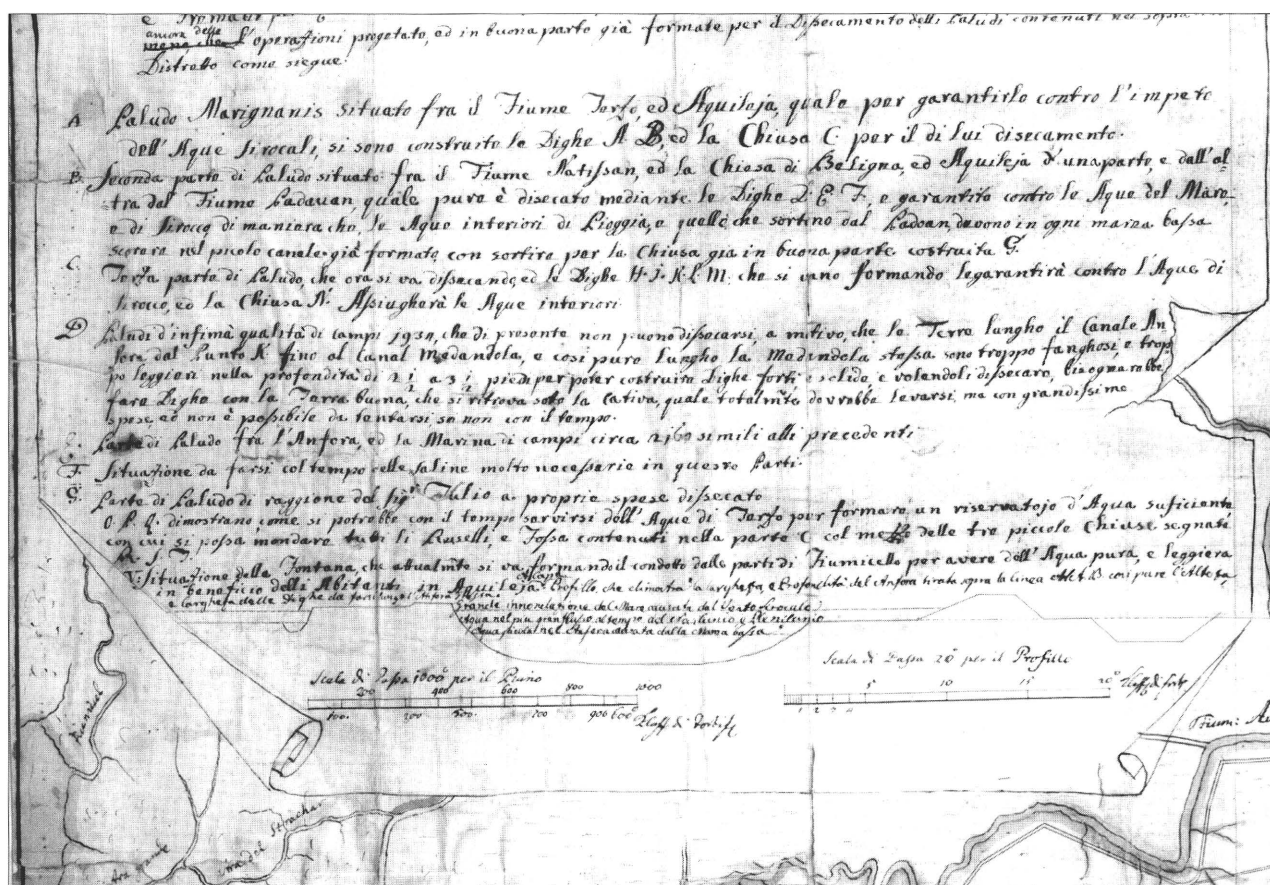 e
ancora delle
l'operazioni progetato, ed in buona parte già formate per il Dissecamento delli Paludi contenuti nel sopra
Distretto come siegue:
A Paludo Marignanis situato fra il Fiume Terzo, ed Aquileja, quale per garantirlo contro l'impeto
dell'Aque sirocali, si sono construite le Dighe A B, ed la Chiusa C per il di lui disecamento.
B. Seconda parte di Paludo situato fra il Fiume Natissan, ed la Chiesa di Beligna, ed Aquileja d'una parte, e dall'al-
tra dal Fiume Padauan, quale pure è disecato mediante le Dighe D. E F., e garantito contro le Aque del Mare,
e di sirocco di maniera che, le Aque interiori di Pioggia, e quelle che sortino dal Padoan, devono in ogni marea bassa
scorere nel picolo canale già formato, con sortire per la Chiusa gia in buona parte costruita G.
C. Terza parte di Paludo, che ora si va dissecando, ed le Dighe H. I. K. L. M. che si vano formando le garantirà contro l'Aque di
sirocco, ed la Chiusa N. Assiugherà le Aque interiori.
D Paludi d'infima qualità di campi 1934, che di presente non puono dissecarsi, a motivo, che le Terre lungho il Canale An-
fora dal Punto K fino al Canal Medandola, e così pure lungho la Medandola stessa sono troppo fanghosi, e trop-
po leggieri nella profondità di 2 1/2 a 3 1/2 piedi per poter costruire Dighe forti e solide, e volendoli dissecare, bisognarebbe
fare Dighe con la Terra buona, che si ritrova sotto la Cativa, quale totalmte dovrebbe levarsi, ma con grandissime
spese, ed non è possibile da tentarsi se non con il tempo.
Parte di Paludo fra l'Anfora, ed la Marina di campi circa simili alli precedenti
F. Situazione da farsi col tempo delle saline molto necessarie in queste Parti.
G. Parte di Paludo di raggione del Sigr Tulio a proprie spese dissecato
O. P. Q. dimostrano come si potrebbe con il tempo servirsi dell'Aque di Terzo per formare un riservatojo d'Aqua suficiente
con cui si possa mondare tutti li Ruselli, e Fossa contenuti nella parte C col mezzo delle tre piccole Chiuse segnati
R. S. T.
V: Situazione della Fontana, che attualmte si va formando il condotto dalle parti di Fiumicello per avere dell'Aqua pura, e leggiera
in beneficio delli Abitanti in Aquileja
Profillo, che dimostra la larghezza, e Profondità del Anfora tirata sopra la linea et B. cosi pure l'Altezza,
e larghezza delle Dighe da farsi lungo l'Anfora
Grande innondatione del Mare causata dal Vento Sirocale
Aqua nel piu gran flusso al tempo del Novilunio e Plenilunio
Aqua nel Anfora causata dalla Marea bassa
Scala di Passa 1000 per il Piano
200 400 600 800 1000
100. 300 500. 700 900
Scala di Passa 20 per il Profillo
5 10 15 20
1 2 3 4
Fium:
Ara grande